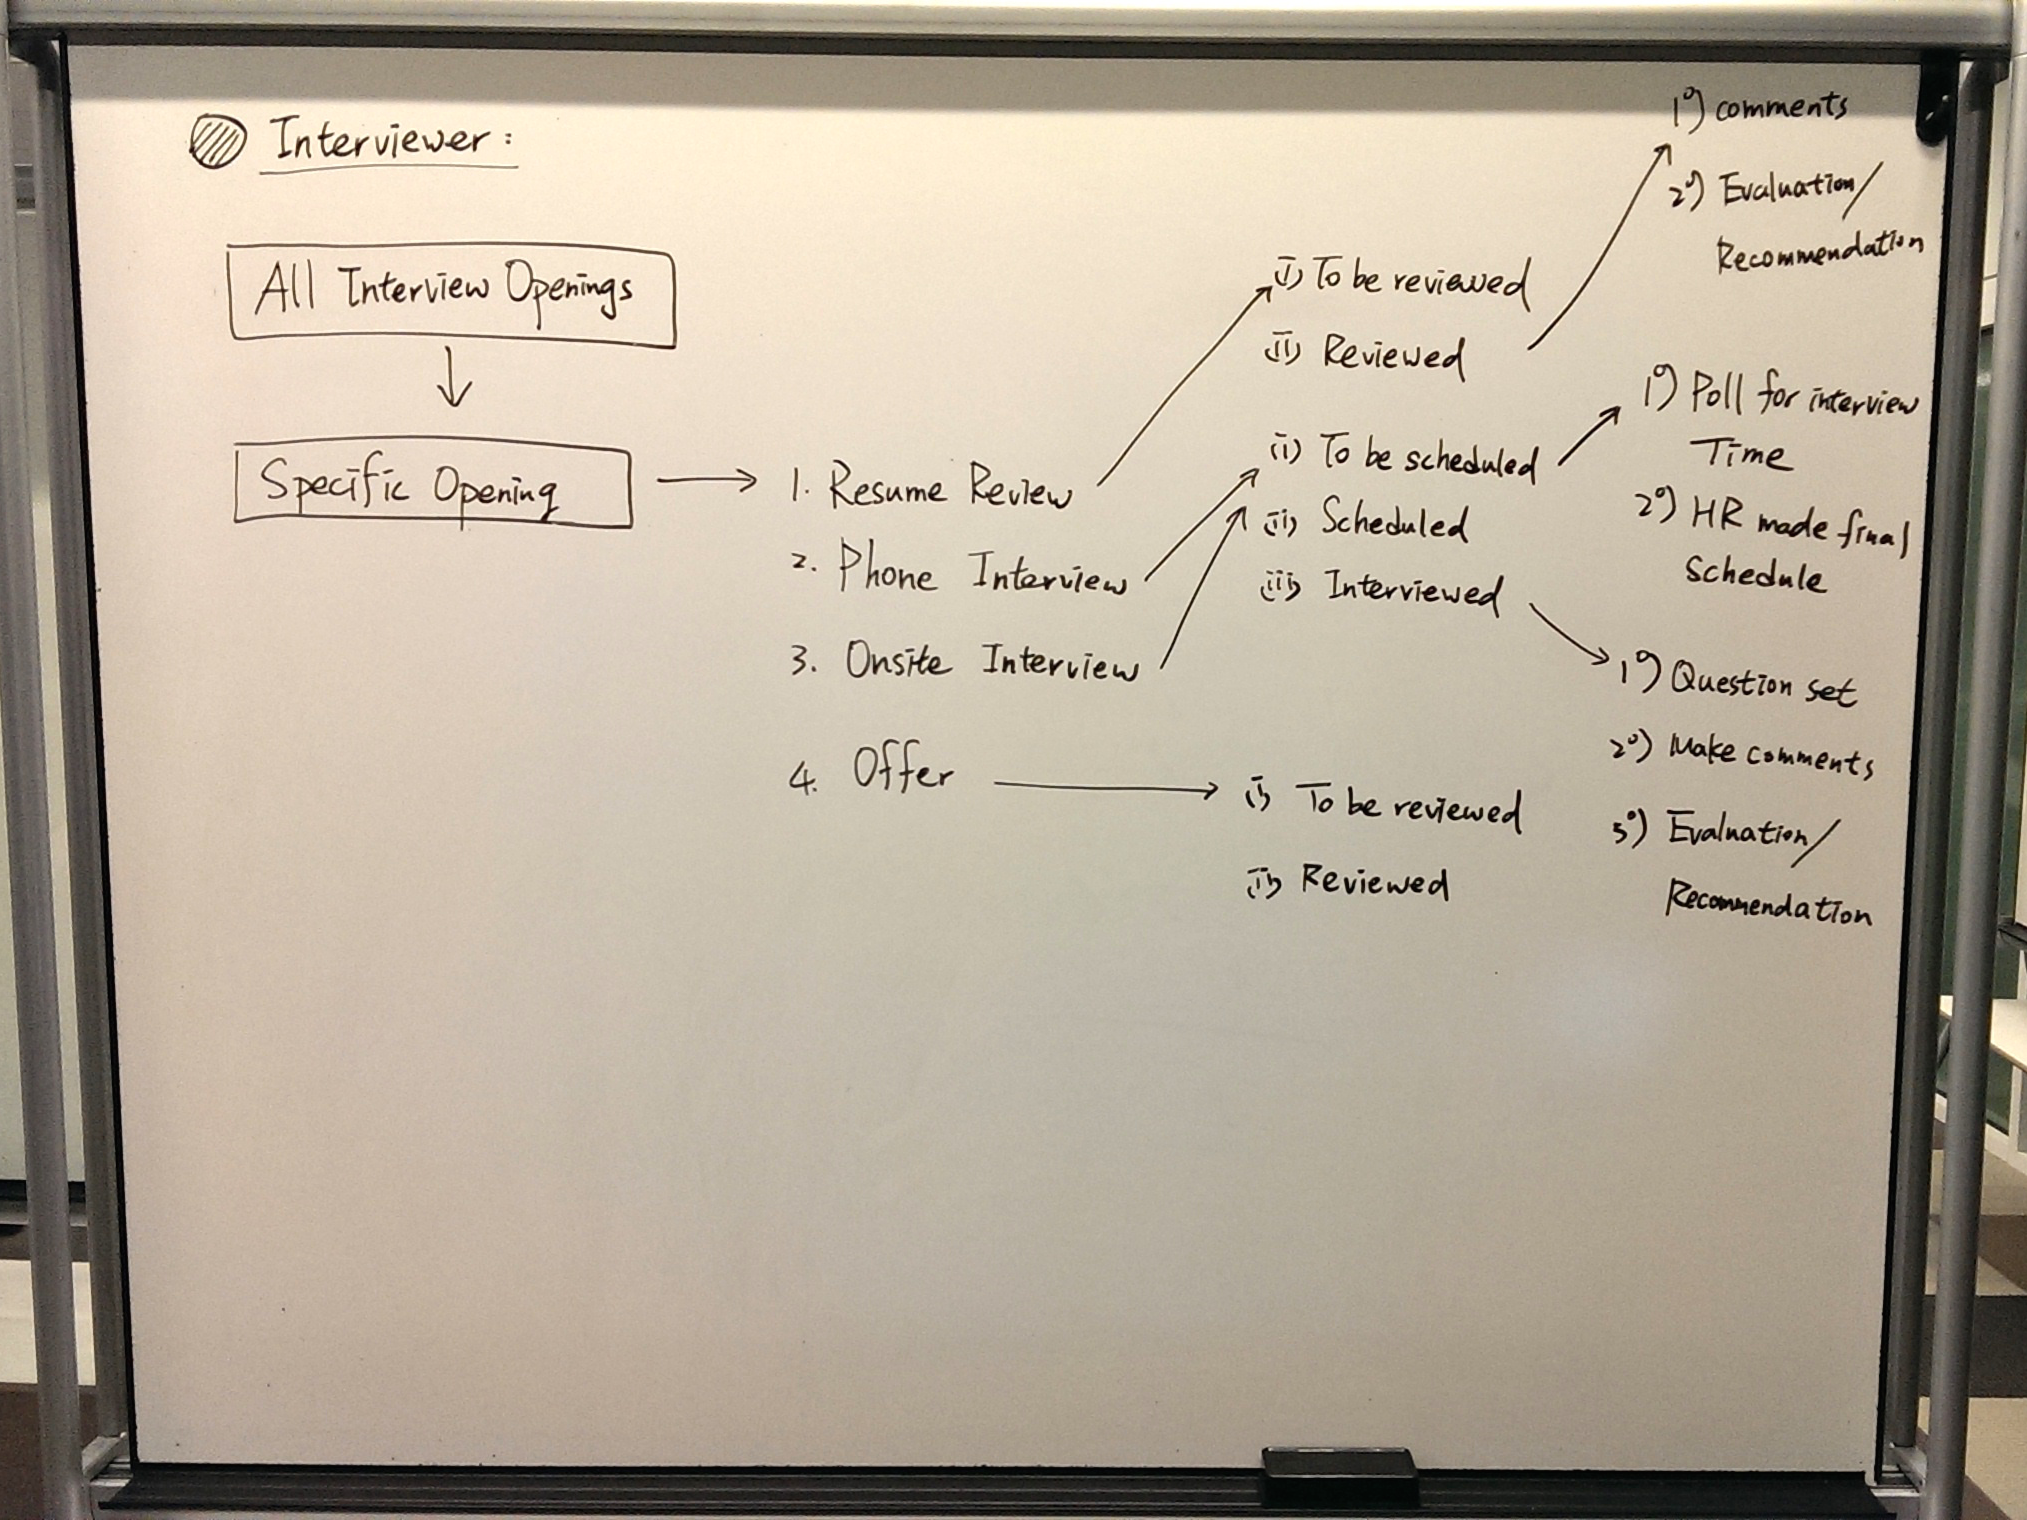 Interviewer:
All Interview Openings
Specific Opening
1. Resume Review
2. Phone Interview
3. Onsite Interview
4. Offer
i) To be reviewed
ii) Reviewed
i) To be scheduled
ii) Scheduled
iii) Interviewed
i) To be reviewed
ii) Reviewed
1°) comments
2°) Evaluation/
Recommendation
1°) Poll for interview
Time
2°) HR made final
Schedule
1°) Question set
2°) Make comments
3°) Evaluation/
Recommendation